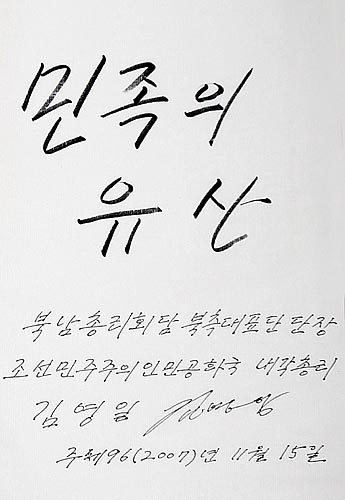 민족의
유산
북남총리회담 북측대표단 단장
조선민주주의인민공화국 내각총리
김영일
주체96(2007)년 11월 15일